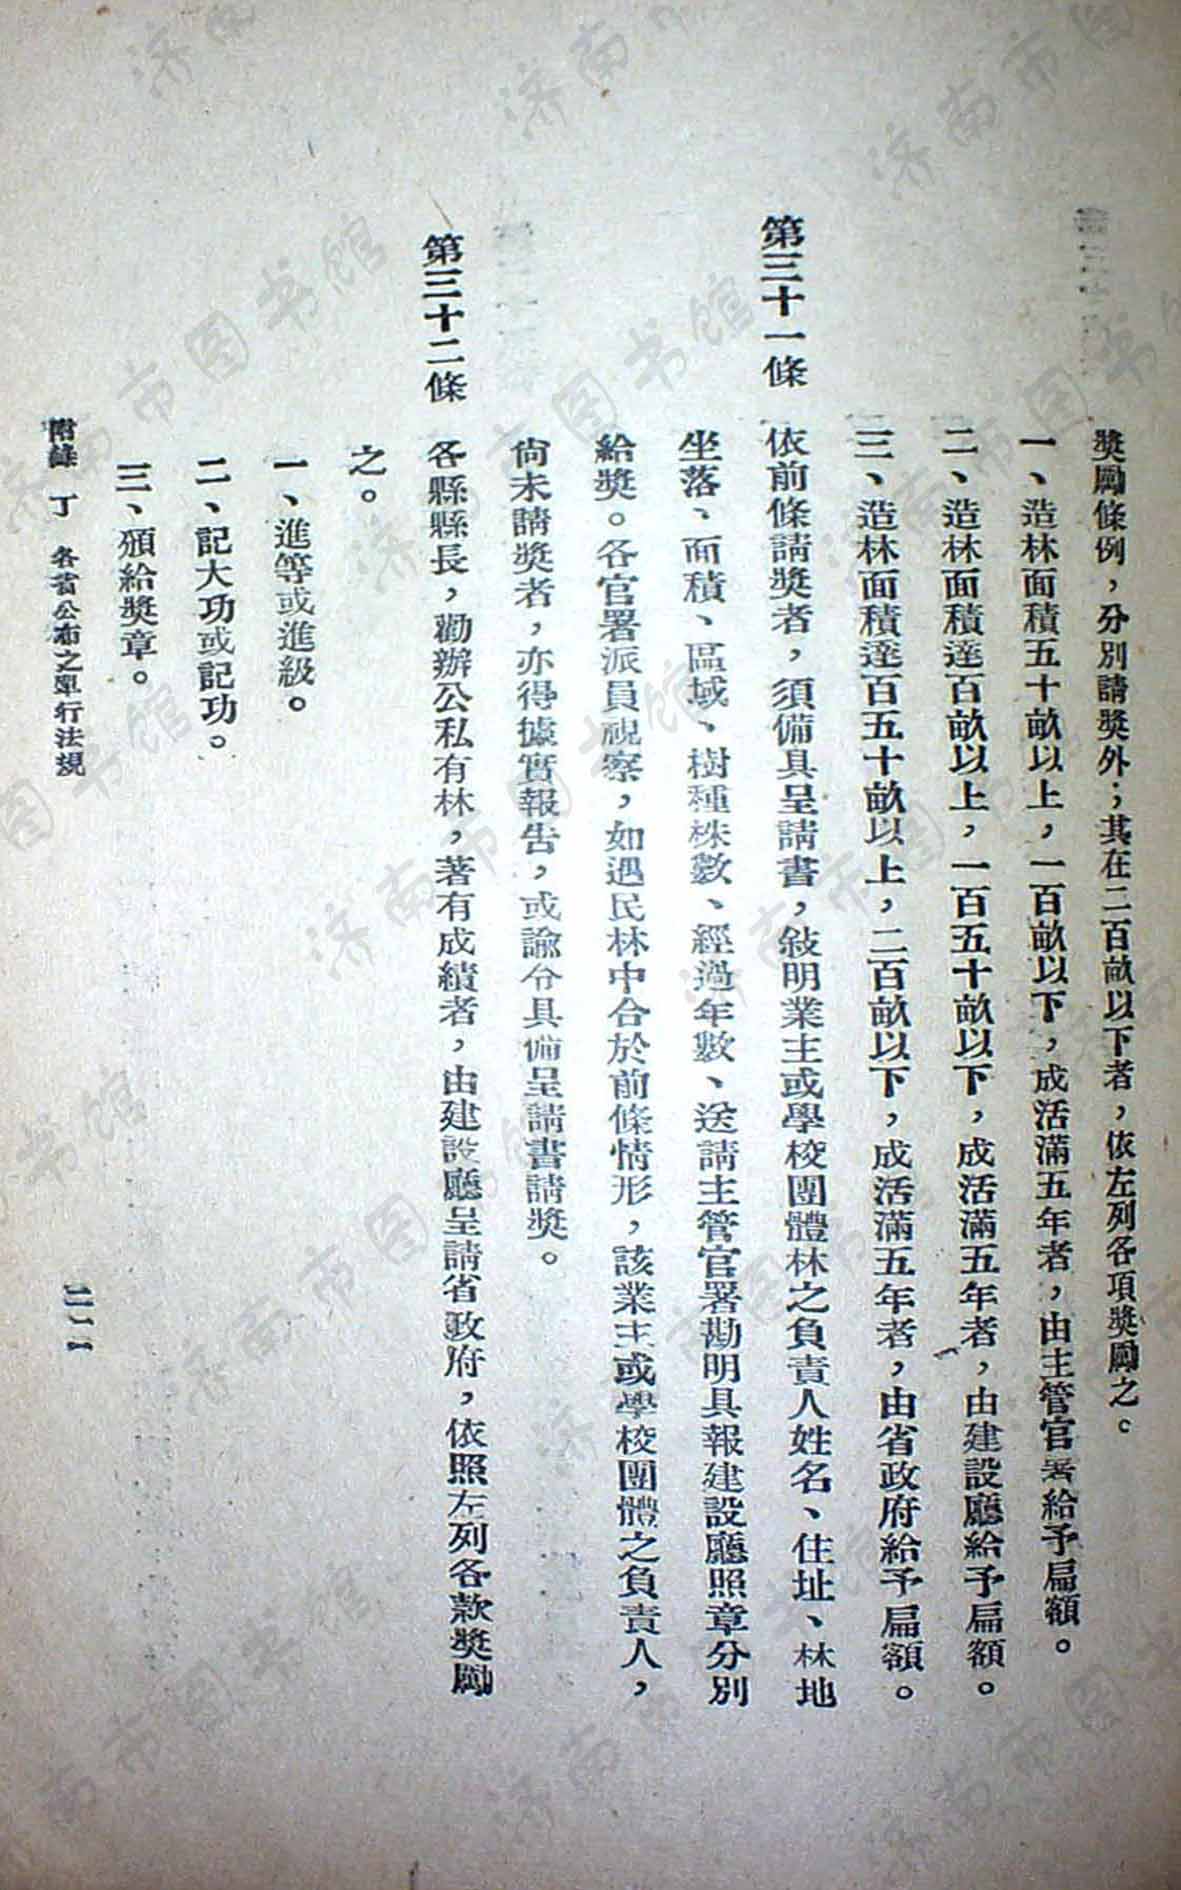 獎勵條例，分別請獎外；其在二百畝以下者，依左列各項獎勵之。
一、造林面積五十畝以上，一百畝以下，成活滿五年者，由主管官署給予扁額。
二、造林面積達百畝以上，一百五十畝以下，成活滿五年者，由建設廳給予扁額。
三、造林面積達百五十畝以上，二百畝以下，成活滿五年者，由省政府給予扁額。
第三十一條　依前條請獎者，須備具呈請書，敍明業主或學校團體林之負責人姓名、住址、林地
坐落、面積、區域、樹種株數、經過年數、送請主管官署勘明具報建設廳照章分別
給獎。各官署派員視察，如遇民林中合於前條情形，該業主或學校團體之負責人，
尙未請獎者，亦得據實報告，或諭令具備呈請書請獎。
第三十二條　各縣縣長，勸辦公私有林，著有成績者，由建設廳呈請省政府，依照左列各款獎勵
之。
一、進等或進級。
二、記大功或記功。
三、頒給獎章。
附錄　丁　各省公布之單行法規
济南市图书馆